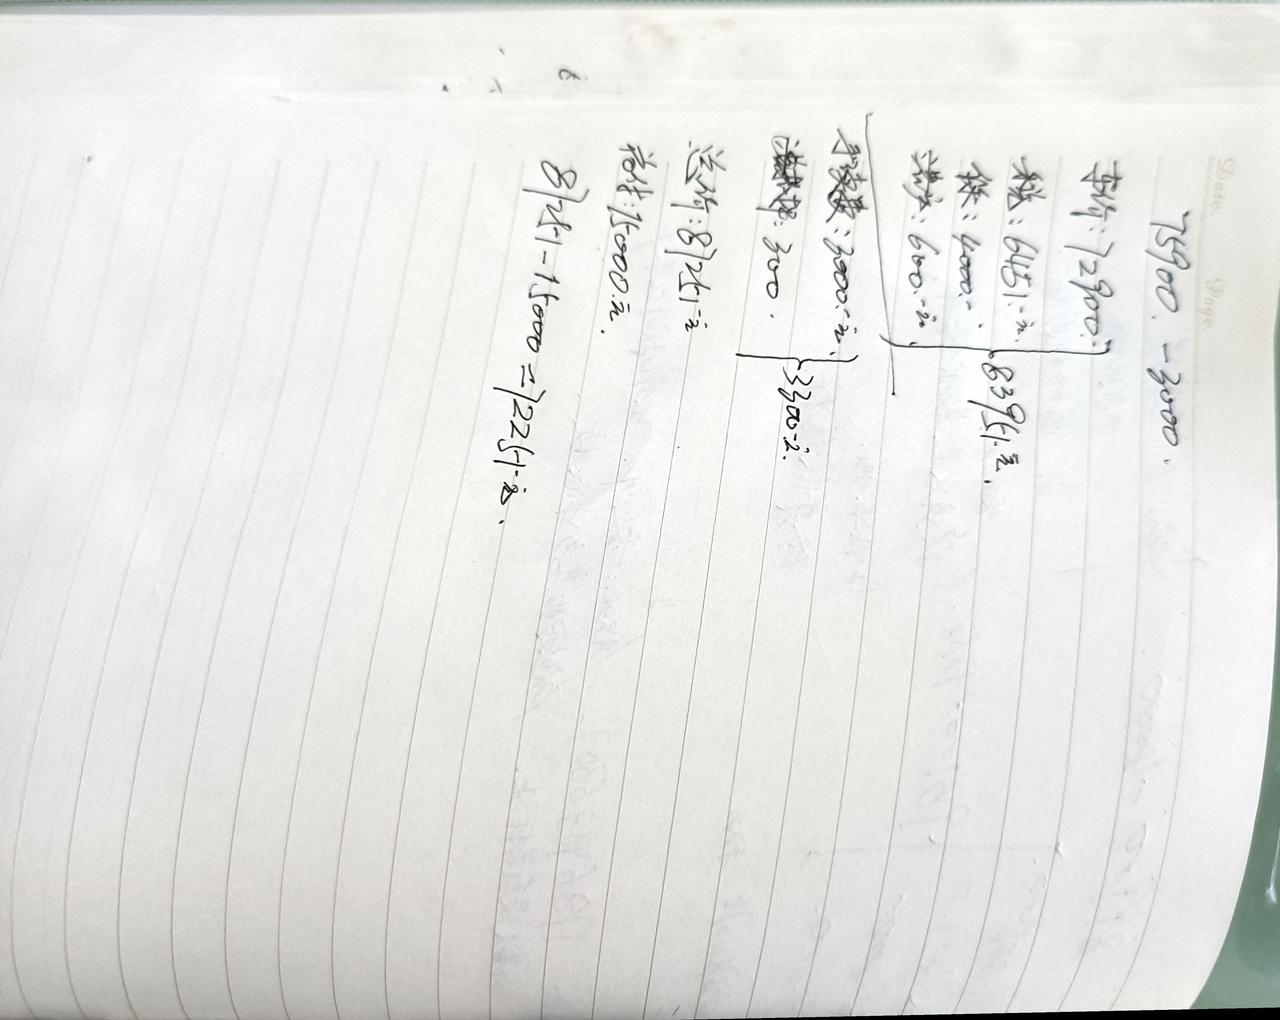 Date.
Page.
75900. -3000.
车价: 72900.-
税: 6451.-元.
保: 4000.-.
上户: 600.-元.
83951.元.
手续费: 3000.-元.
: 300.
3300-元.
总价: 87251-元
首付: 15000元.
87251-15000=72251-元.